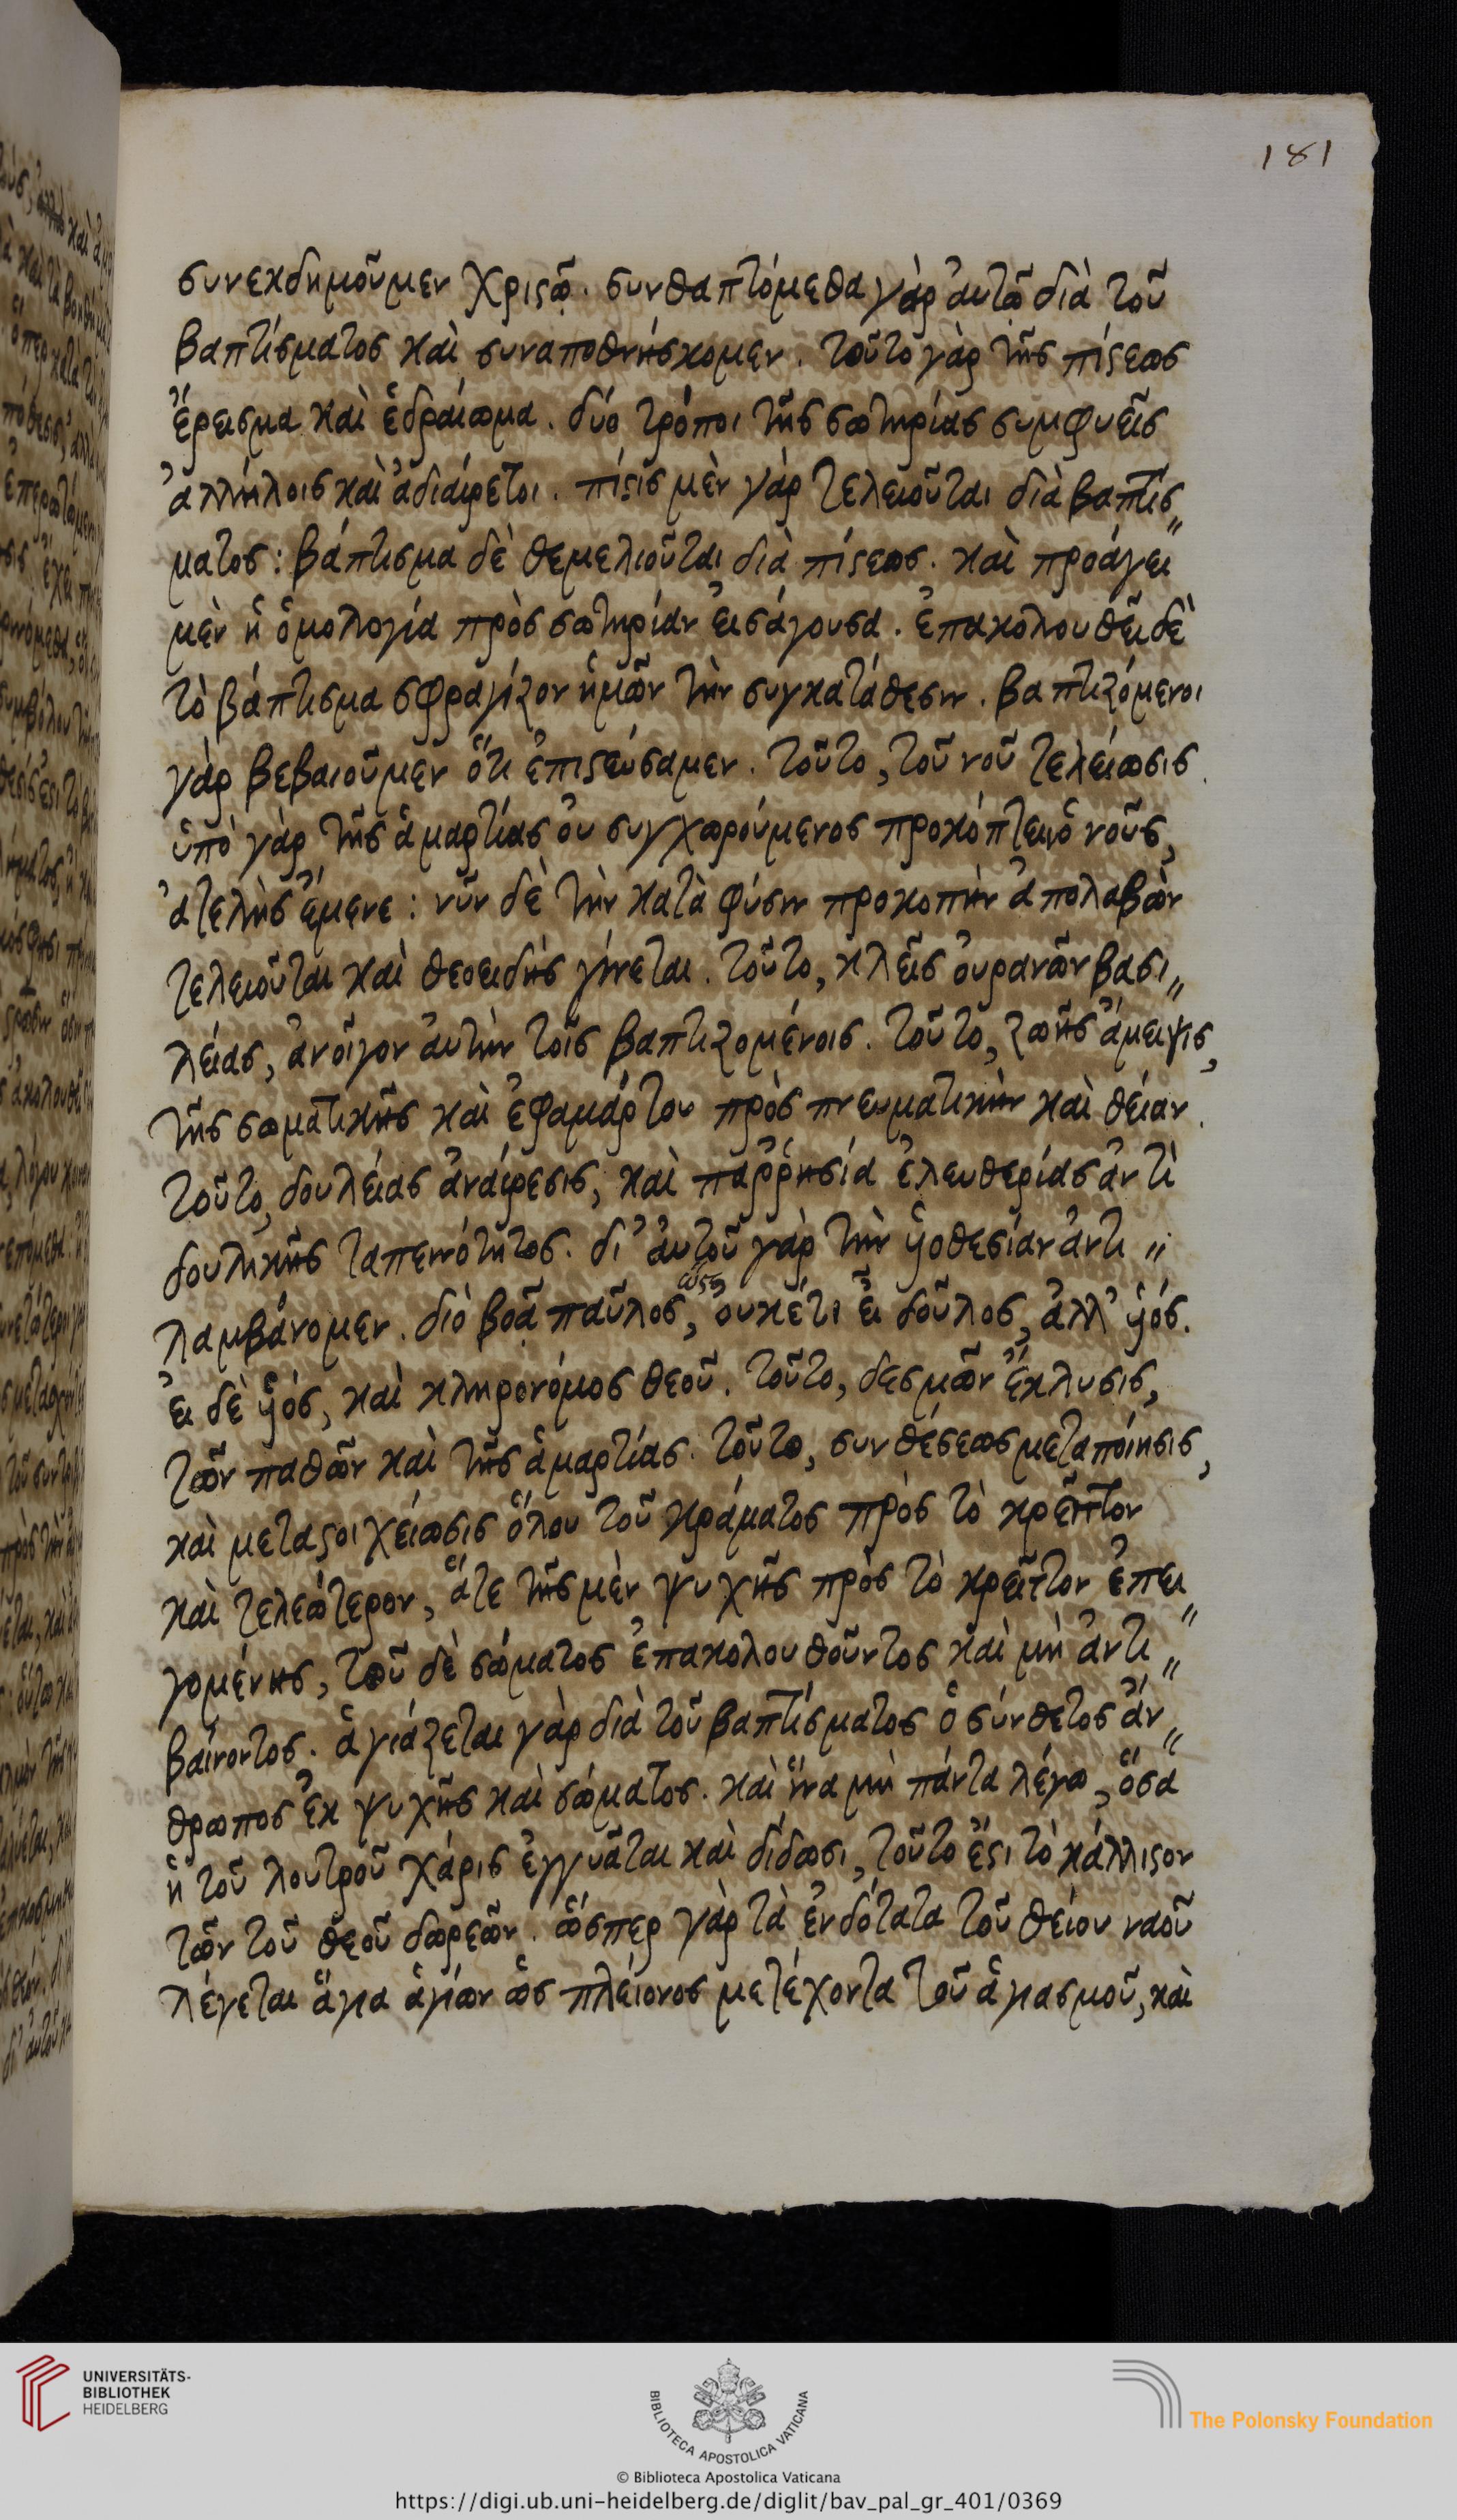 181
συνεκδημοῦμεν Χριστῷ. συνθαπτόμεθα γὰρ αὐτῷ διὰ τοῦ
βαπτίσματος καὶ συναποθνήσκομεν. τοῦτο γὰρ τῆς πίστεως
ἔρεισμα καὶ ἑδραίωμα. δύο τρόποι τῆς σωτηρίας συμφυεῖς
ἀλλήλοις καὶ ἀδιαίρετοι. πίστις μὲν γὰρ τελειοῦται διὰ βαπτίσ„
ματος: βάπτισμα δὲ θεμελιοῦται διὰ πίστεως. καὶ προάγει
μὲν ἡ ὁμολογία πρὸς σωτηρίαν εἰσάγουσα. ἐπακολουθεῖ δὲ
τὸ βάπτισμα σφραγίζον ἡμῶν τὴν συγκατάθεσιν. βαπτιζόμενοι
γὰρ βεβαιοῦμεν ὅτι ἐπιστεύσαμεν. τοῦτο, τοῦ νοῦ τελείωσις.
ὑπὸ γὰρ τῆς ἁμαρτίας οὐ συγχωρούμενος προκόπτειν ὁ νοῦς,
ἀτελὴς ἔμενε: νῦν δὲ τὴν κατὰ φύσιν προκοπὴν ἀπολαβὼν
τελειοῦται καὶ θεοειδὴς γίνεται. τοῦτο, κλεῖς οὐρανῶν βασι„
λείας, ἀνοῖγον αὐτὴν τοῖς βαπτιζομένοις. τοῦτο, ζωῆς ἄμειψις,
τῆς σωματικῆς καὶ ἐφαμάρτου πρὸς πνευματικὴν καὶ θείαν.
τοῦτο, δουλείας ἀναίρεσις, καὶ παῤῥησία ἐλευθερίας ἀντὶ
δουλικῆς ταπεινότητος. δι' αὐτοῦ γὰρ τὴν υἱοθεσίαν ἀντι„
λαμβάνομεν. διὸ βοᾷ παῦλος, ὥστε οὐκέτι εἶ δοῦλος, ἀλλ' υἱός.
εἰ δὲ υἱός, καὶ κληρονόμος θεοῦ. τοῦτο, δεσμῶν ἔκλυσις,
τῶν παθῶν καὶ τῆς ἁμαρτίας. τοῦτο, συνθέσεως μεταποίησις,
καὶ μεταστοιχείωσις ὅλου τοῦ κράματος πρὸς τὸ κρεῖττον
καὶ τελεώτερον, ἅτε τῆς μὲν ψυχῆς πρὸς τὸ κρεῖττον ἐπει„
γομένης, τοῦ δὲ σώματος ἐπακολουθοῦντος καὶ μὴ ἀντι„
βαίνοντος. ἁγιάζεται γὰρ διὰ τοῦ βαπτίσματος ὁ σύνθετος ἄν„
θρωπος ἐκ ψυχῆς καὶ σώματος. καὶ ἵνα μὴ πάντα λέγω, ὅσα
ἡ τοῦ λουτροῦ χάρις ἐγγυᾶται καὶ δίδωσι, τοῦτο ἔστι τὸ κάλλιστον
τῶν τοῦ θεοῦ δωρεῶν. ὥσπερ γὰρ τὰ ἐνδότατα τοῦ θείου ναοῦ
λέγεται ἅγια ἁγίων ὡς πλείονος μετέχοντα τοῦ ἁγιασμοῦ, καὶ
UNIVERSITÄTS-
BIBLIOTHEK
HEIDELBERG
BIBLIOTECA APOSTOLICA VATICANA
The Polonsky Foundation
© Biblioteca Apostolica Vaticana
https://digi.ub.uni-heidelberg.de/diglit/bav_pal_gr_401/0369